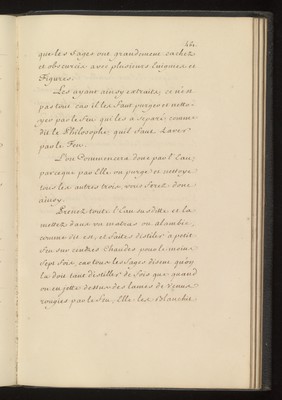 441.
que les Sages ont grandement cachez
et obscurcis avec plusieurs Enigmes et
Figures.
Les ayant ainsy extraits, ce n'est
pas tout car il les faut purger et netto-
yer par le feu qui les a separé, comme
dit le Philosophe, qu'il faut Laver
par le Feu.
L'on Commencera donc par l'Eau,
parceque par Elle on purge et nettoye
tous les autres trois, vous ferez donc
ainsy.
Prenez toute l'Eau susditte et la
mettez dans un matras ou alambic,
comme dit est, et faites distiler à petit
feu sur cendres Chaudes pour le moins
sept fois, car tous les Sages disent qu'on
la doit tant distiller de fois que quand
on en jette dessus des lames de Venus
rougies par le feu, Elle les Blanchit